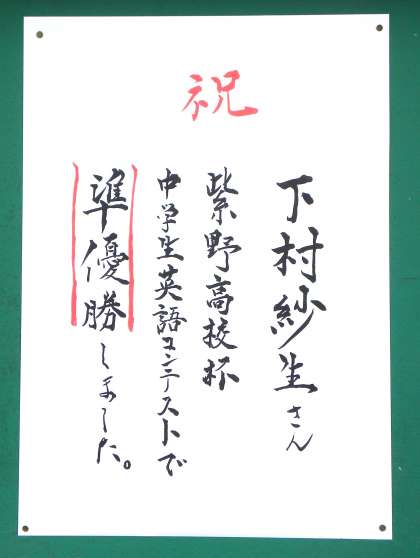 祝
下村紗生さん
紫野高校杯
中学生英語コンテストで
準優勝しました。